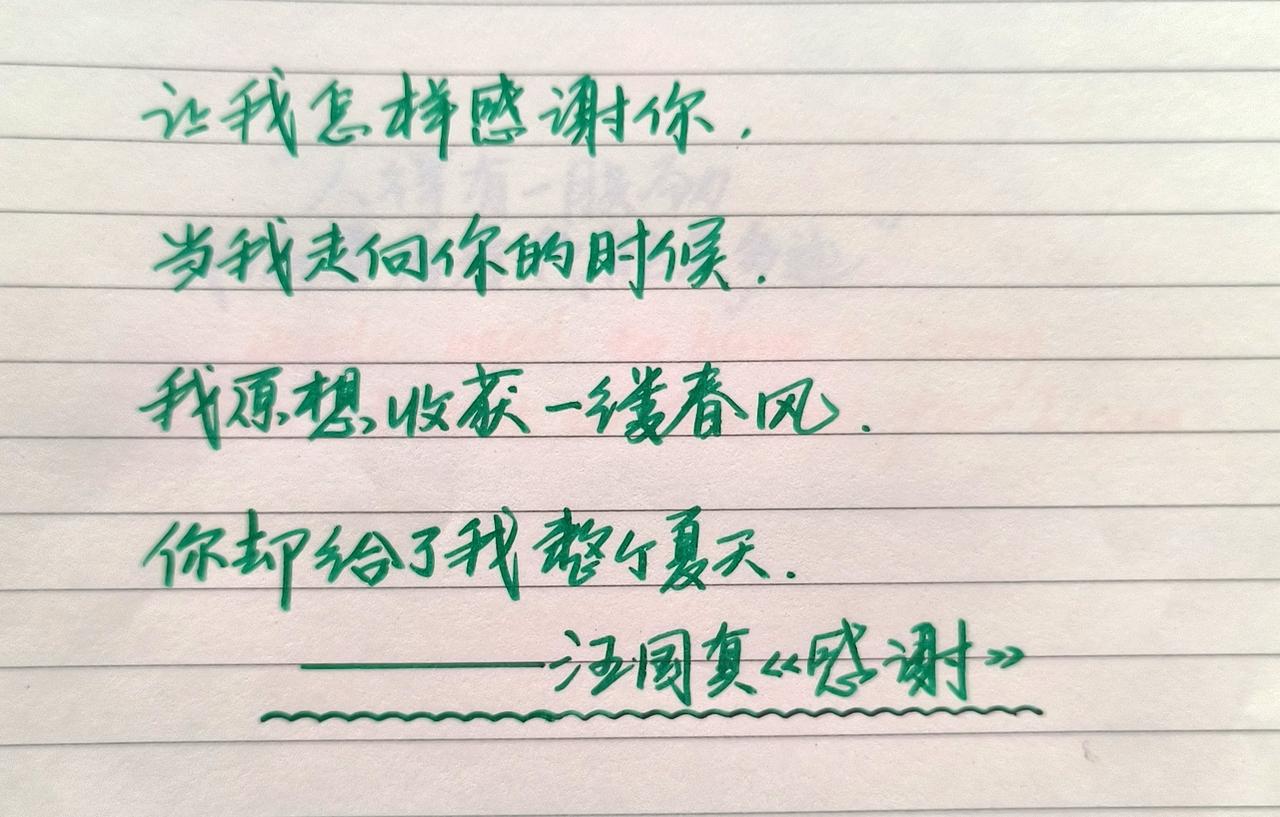 让我怎样感谢你.
当我走向你的时候.
我原想收获一缕春风.
你却给了我整个夏天.
——汪国真《感谢》